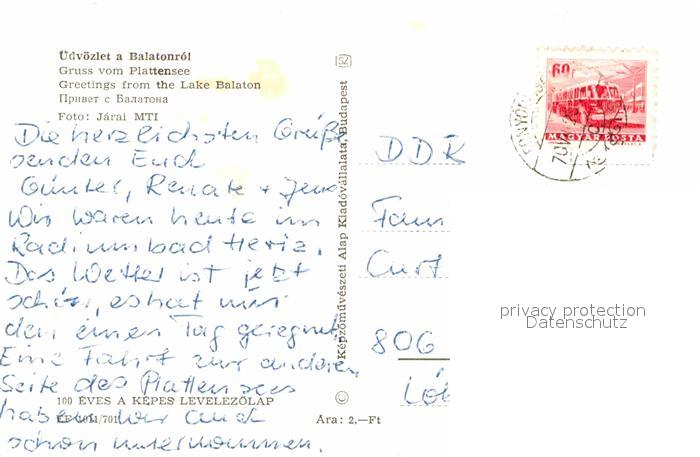 Üdvözlet a Balatonról
Gruss vom Plattensee
Greetings from the Lake Balaton
Привет с Балатона
Foto: Járai MTI
Die herzlichsten Grüße
senden Euch
Günter, Renate + Jens
Wir waren heute im
Radiumbad Heviz.
Das Wetter ist jetzt
schön, es hat nur
den einen Tag geregnet.
Eine Fahrt zur anderen
Seite des Plattensees
100 ÉVES A KÉPES LEVELEZŐLAP
haben wir auch
schon unternommen.
Ára: 2,—Ft
Képzőművészeti Alap Kiadóvállalata, Budapest
60f
MAGYAR POSTA
DDR
Fam
Curt
806
Lö
privacy protection
Datenschutz